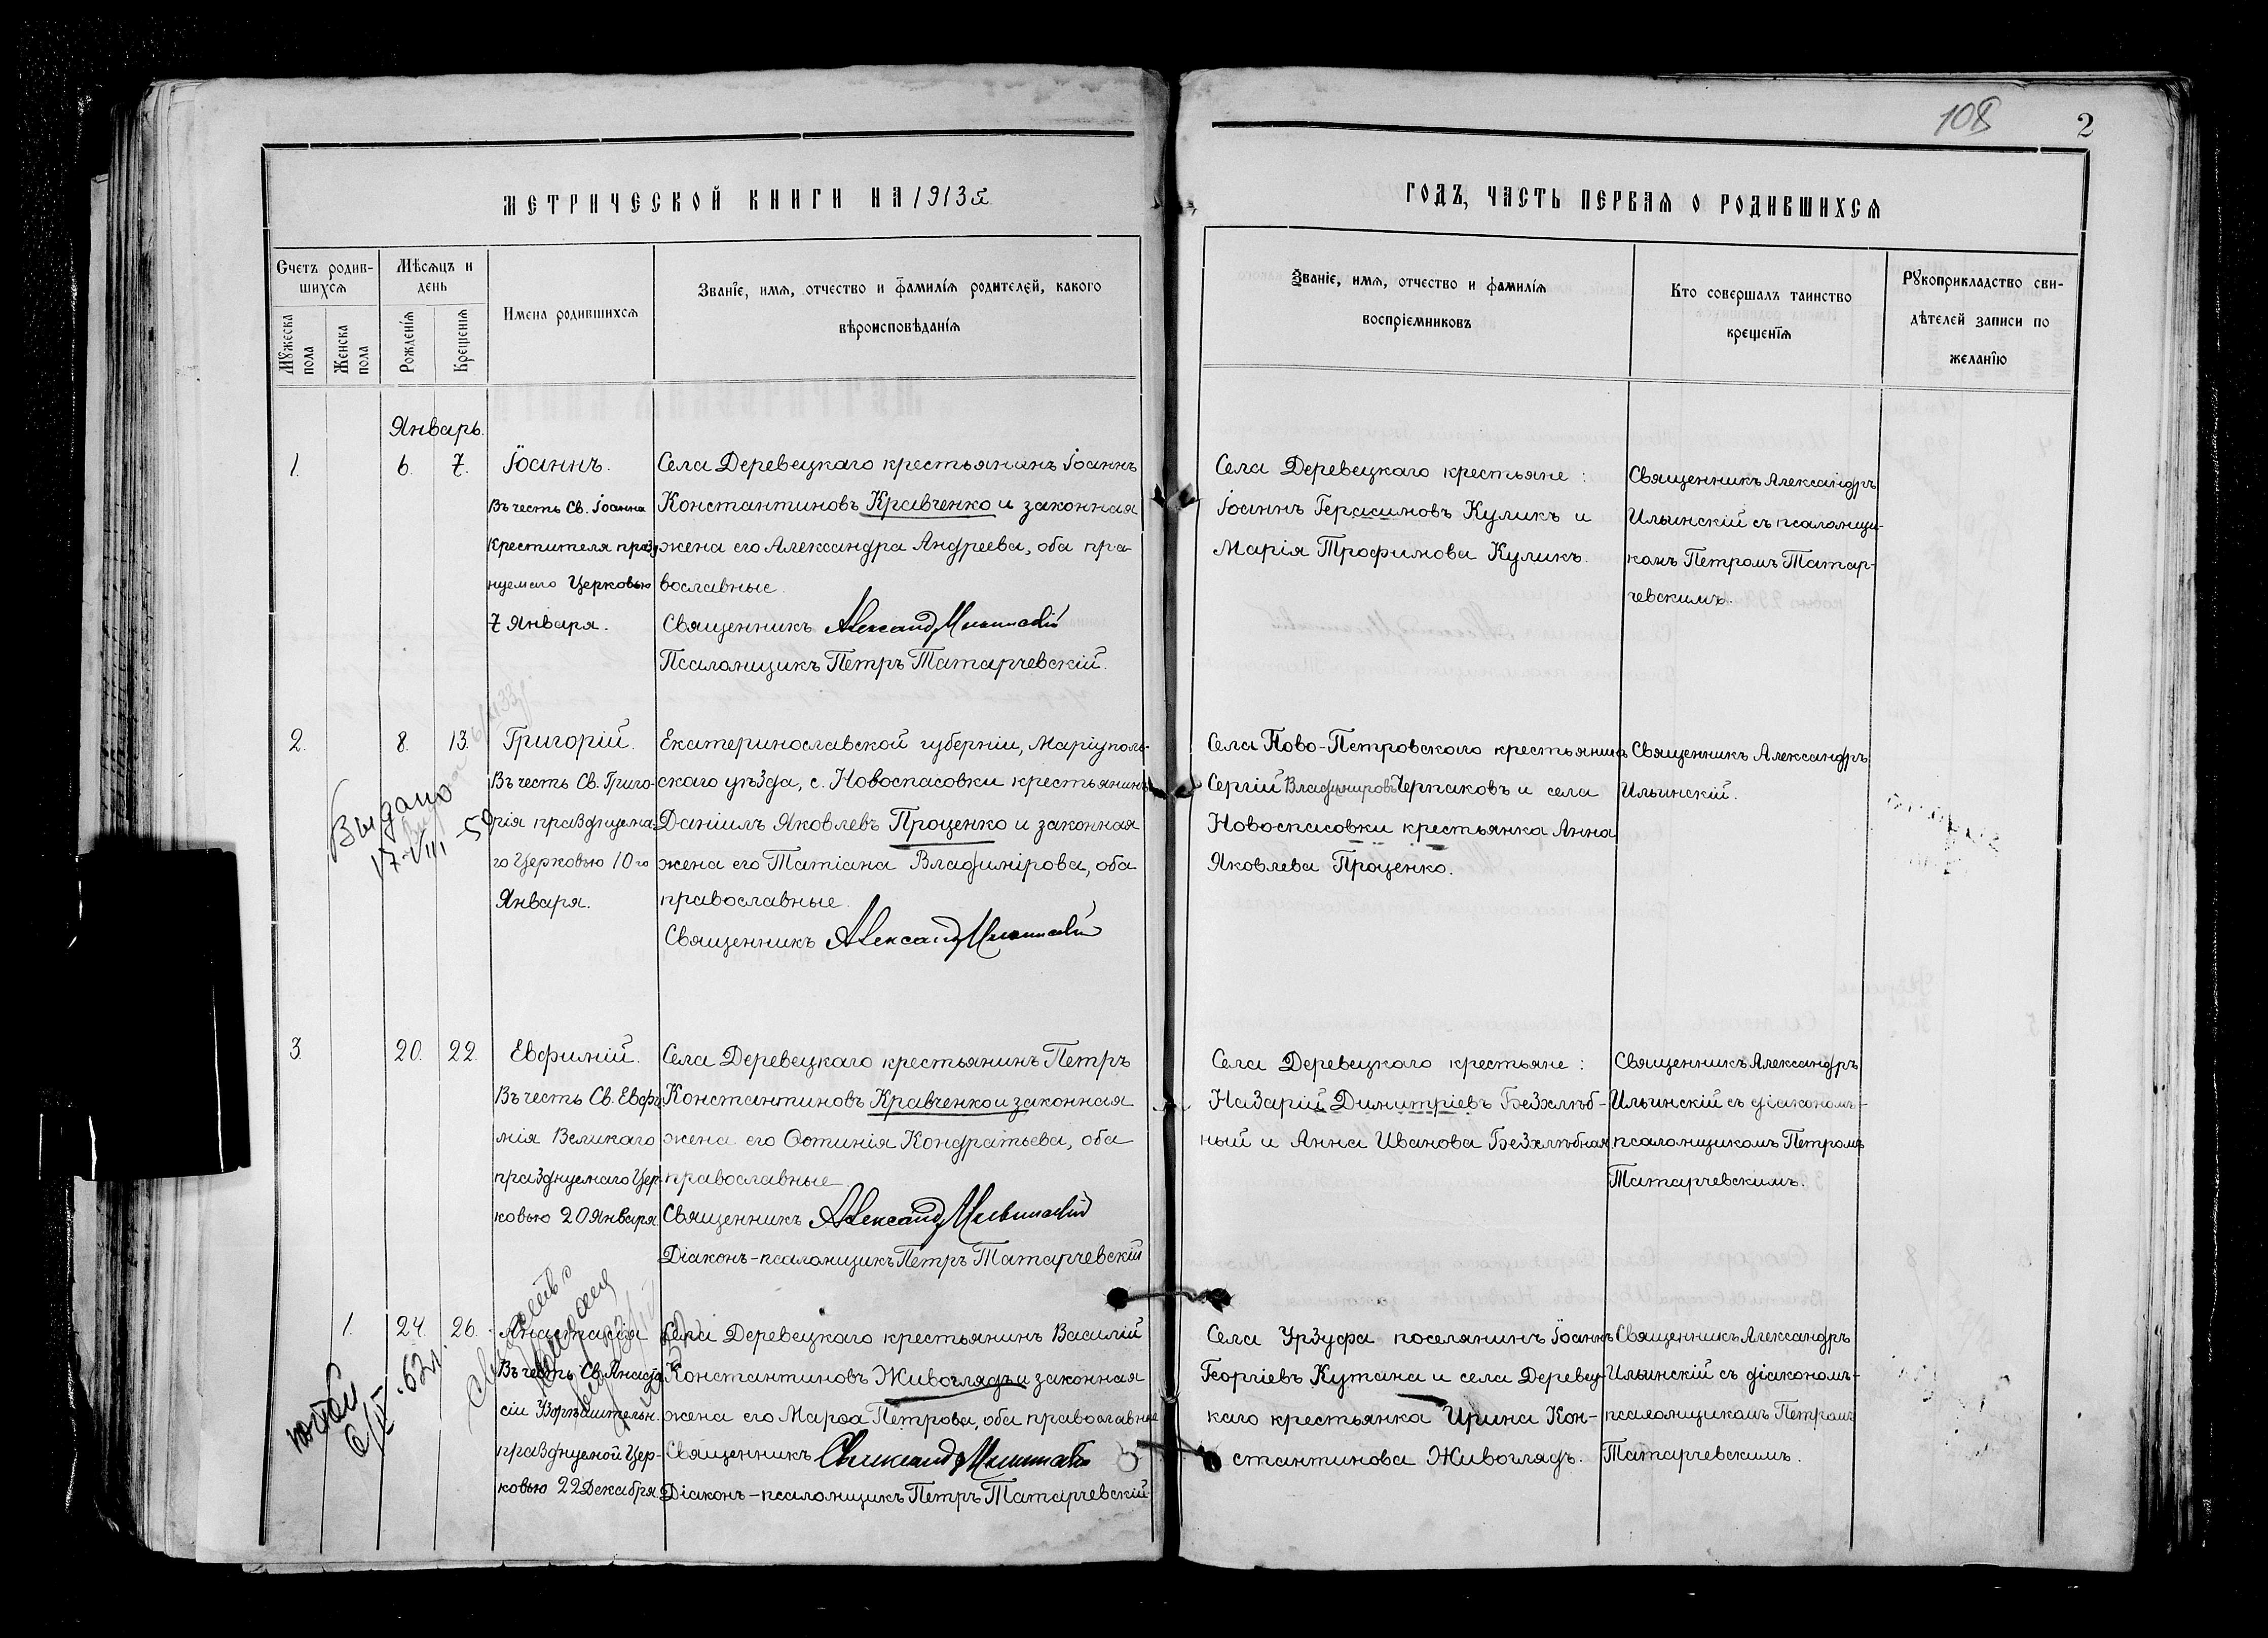 108
2
МЕТРИЧЕСКОЙ КНИГИ НА 1913й
ГОДЪ, ЧАСТЬ ПЕРВАЯ О РОДИВШИХСЯ
Счетъ родив-
шихся
Мужеска пола
Женска пола
Мѣсяцъ и
день
Рожденія
Крещенія
Имена родившихся
Званіе, имя, отчество и фамилія родителей, какого
вѣроисповѣданія
Званіе, имя, отчество и фамилія
воспріемниковъ
Кто совершалъ таинство
крещенія
Рукоприкладство сви-
дѣтелей записи по
желанію
Январь.
1.
6.
7.
Іоаннъ.
Въ честь Св. Іоанна
Крестителя празд
нуемаго Церковью
7 Января.
Села Деревецкаго крестьянинъ Іоаннъ
Константиновъ Кравченко и законная
жена его Александра Андреева, оба пра-
вославные.
Священникъ Александръ Ильинскій
Псаломщикъ Петръ Татарчевскій.
Села Деревецкаго крестьяне:
Іоаннъ Герасимовъ Куликъ и
Марія Трофимова Куликъ.
Священникъ Александръ
Ильинскій съ псаломщи-
комъ Петромъ Татар-
чевскимъ.
2.
8.
13.
Григорій.
Въ честь Св. Григо-
рія празднуема-
го Церковью 10го
Января.
Екатеринославской губерніи, Маріуполь-
скаго уѣзда, с. Новоспасовки крестьянинъ
Даніилъ Яковлевъ Проценко и законная
жена его Татіана Владимірова, оба
православные.
Священникъ Александръ Ильинскій
Села Ново-Петровского крестьянинъ
Сергій Владиміровъ Черпаковъ и села
Новоспасовки крестьянка Анна
Яковлева Проценко.
Священникъ Александръ
Ильинскій.
Выдано
17-VIII-59
3.
20.
22.
Евфимій.
Въ честь Св. Евфи
мія Великаго
празднуемаго Цер-
ковью 20 Января
Села Деревецкаго крестьянинъ Петръ
Константиновъ Кравченко и законная
жена его Фотинія Кондратьева, оба
православные.
Священникъ Александръ Ильинскій
Діаконъ-псаломщикъ Петръ Татарчевскій
Села Деревецкаго крестьяне:
Назарій Димитріевъ Безхлѣб-
ный и Анна Иванова Безхлѣбная
Священникъ Александръ
Ильинскій съ діакономъ-
псаломщикомъ Петромъ
Татарчевскимъ.
1.
24.
26.
Анастасія
Въ честь Св. Анаста
сіи Узорѣшительн.
празднуемой Цер-
ковью 22 Декабря
Села Деревецкаго крестьянинъ Василій
Константиновъ Живоглядъ и законная
жена его Марфа Петрова, оба православные
Священникъ Александръ Ильинскій
Діаконъ-псаломщикъ Петръ Татарчевскій
Села Урзуфа поселянинъ Іоаннъ
Георгіевъ Кутана и села Деревец-
каго крестьянка Ирина Кон-
стантинова Живоглядъ.
Священникъ Александръ
Ильинскій съ діакономъ-
псаломщикомъ Петромъ
Татарчевскимъ.